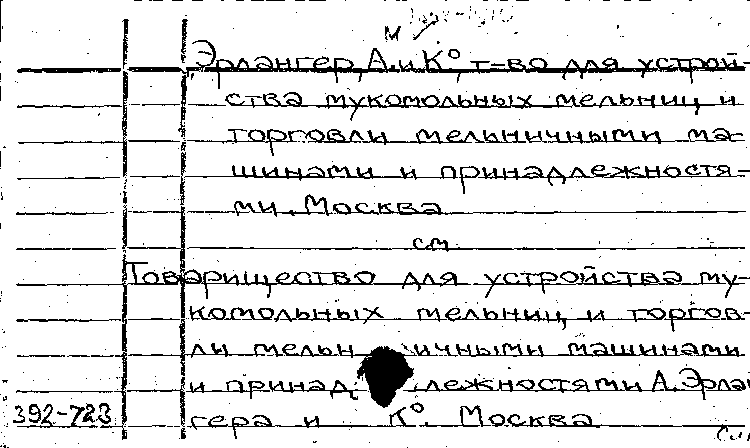 М
Эрлангер, А. и К°, т-во для устрой-
ства мукомольных мельниц и
торговли мельничными ма-
шинами и принадлежностя-
ми. Москва
см
Товарищество для устройства му-
комольных мельниц и торгов-
ли мельн ичными машинами
и принад лежностями А. Эрлан
392-723 гера и К°. Москва